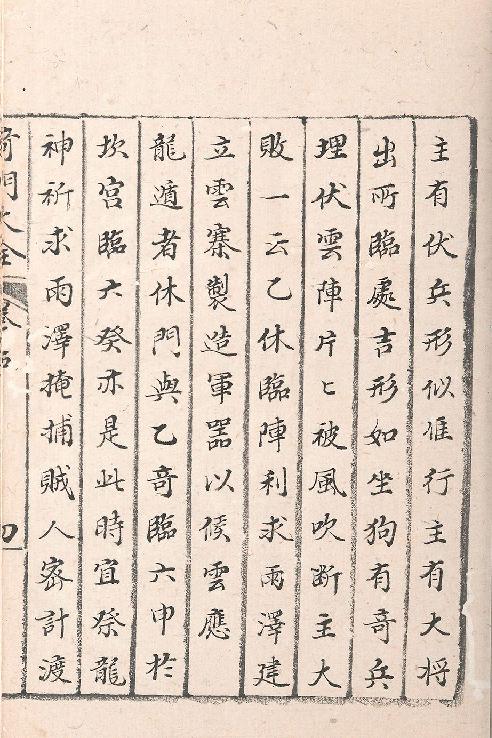 主有伏兵形似隹行主有大将
出所臨處吉形如坐狗有奇兵
埋伏雲陣片〻被風吹断主大
敗一云乙休臨陣利求雨澤建
立雲寨製造軍器以候雲應
龍遁者休門與乙奇臨六申於
坎宫臨六癸亦是此時宜祭龍
神祈求雨澤掩捕賊人宻計渡
奇門大全